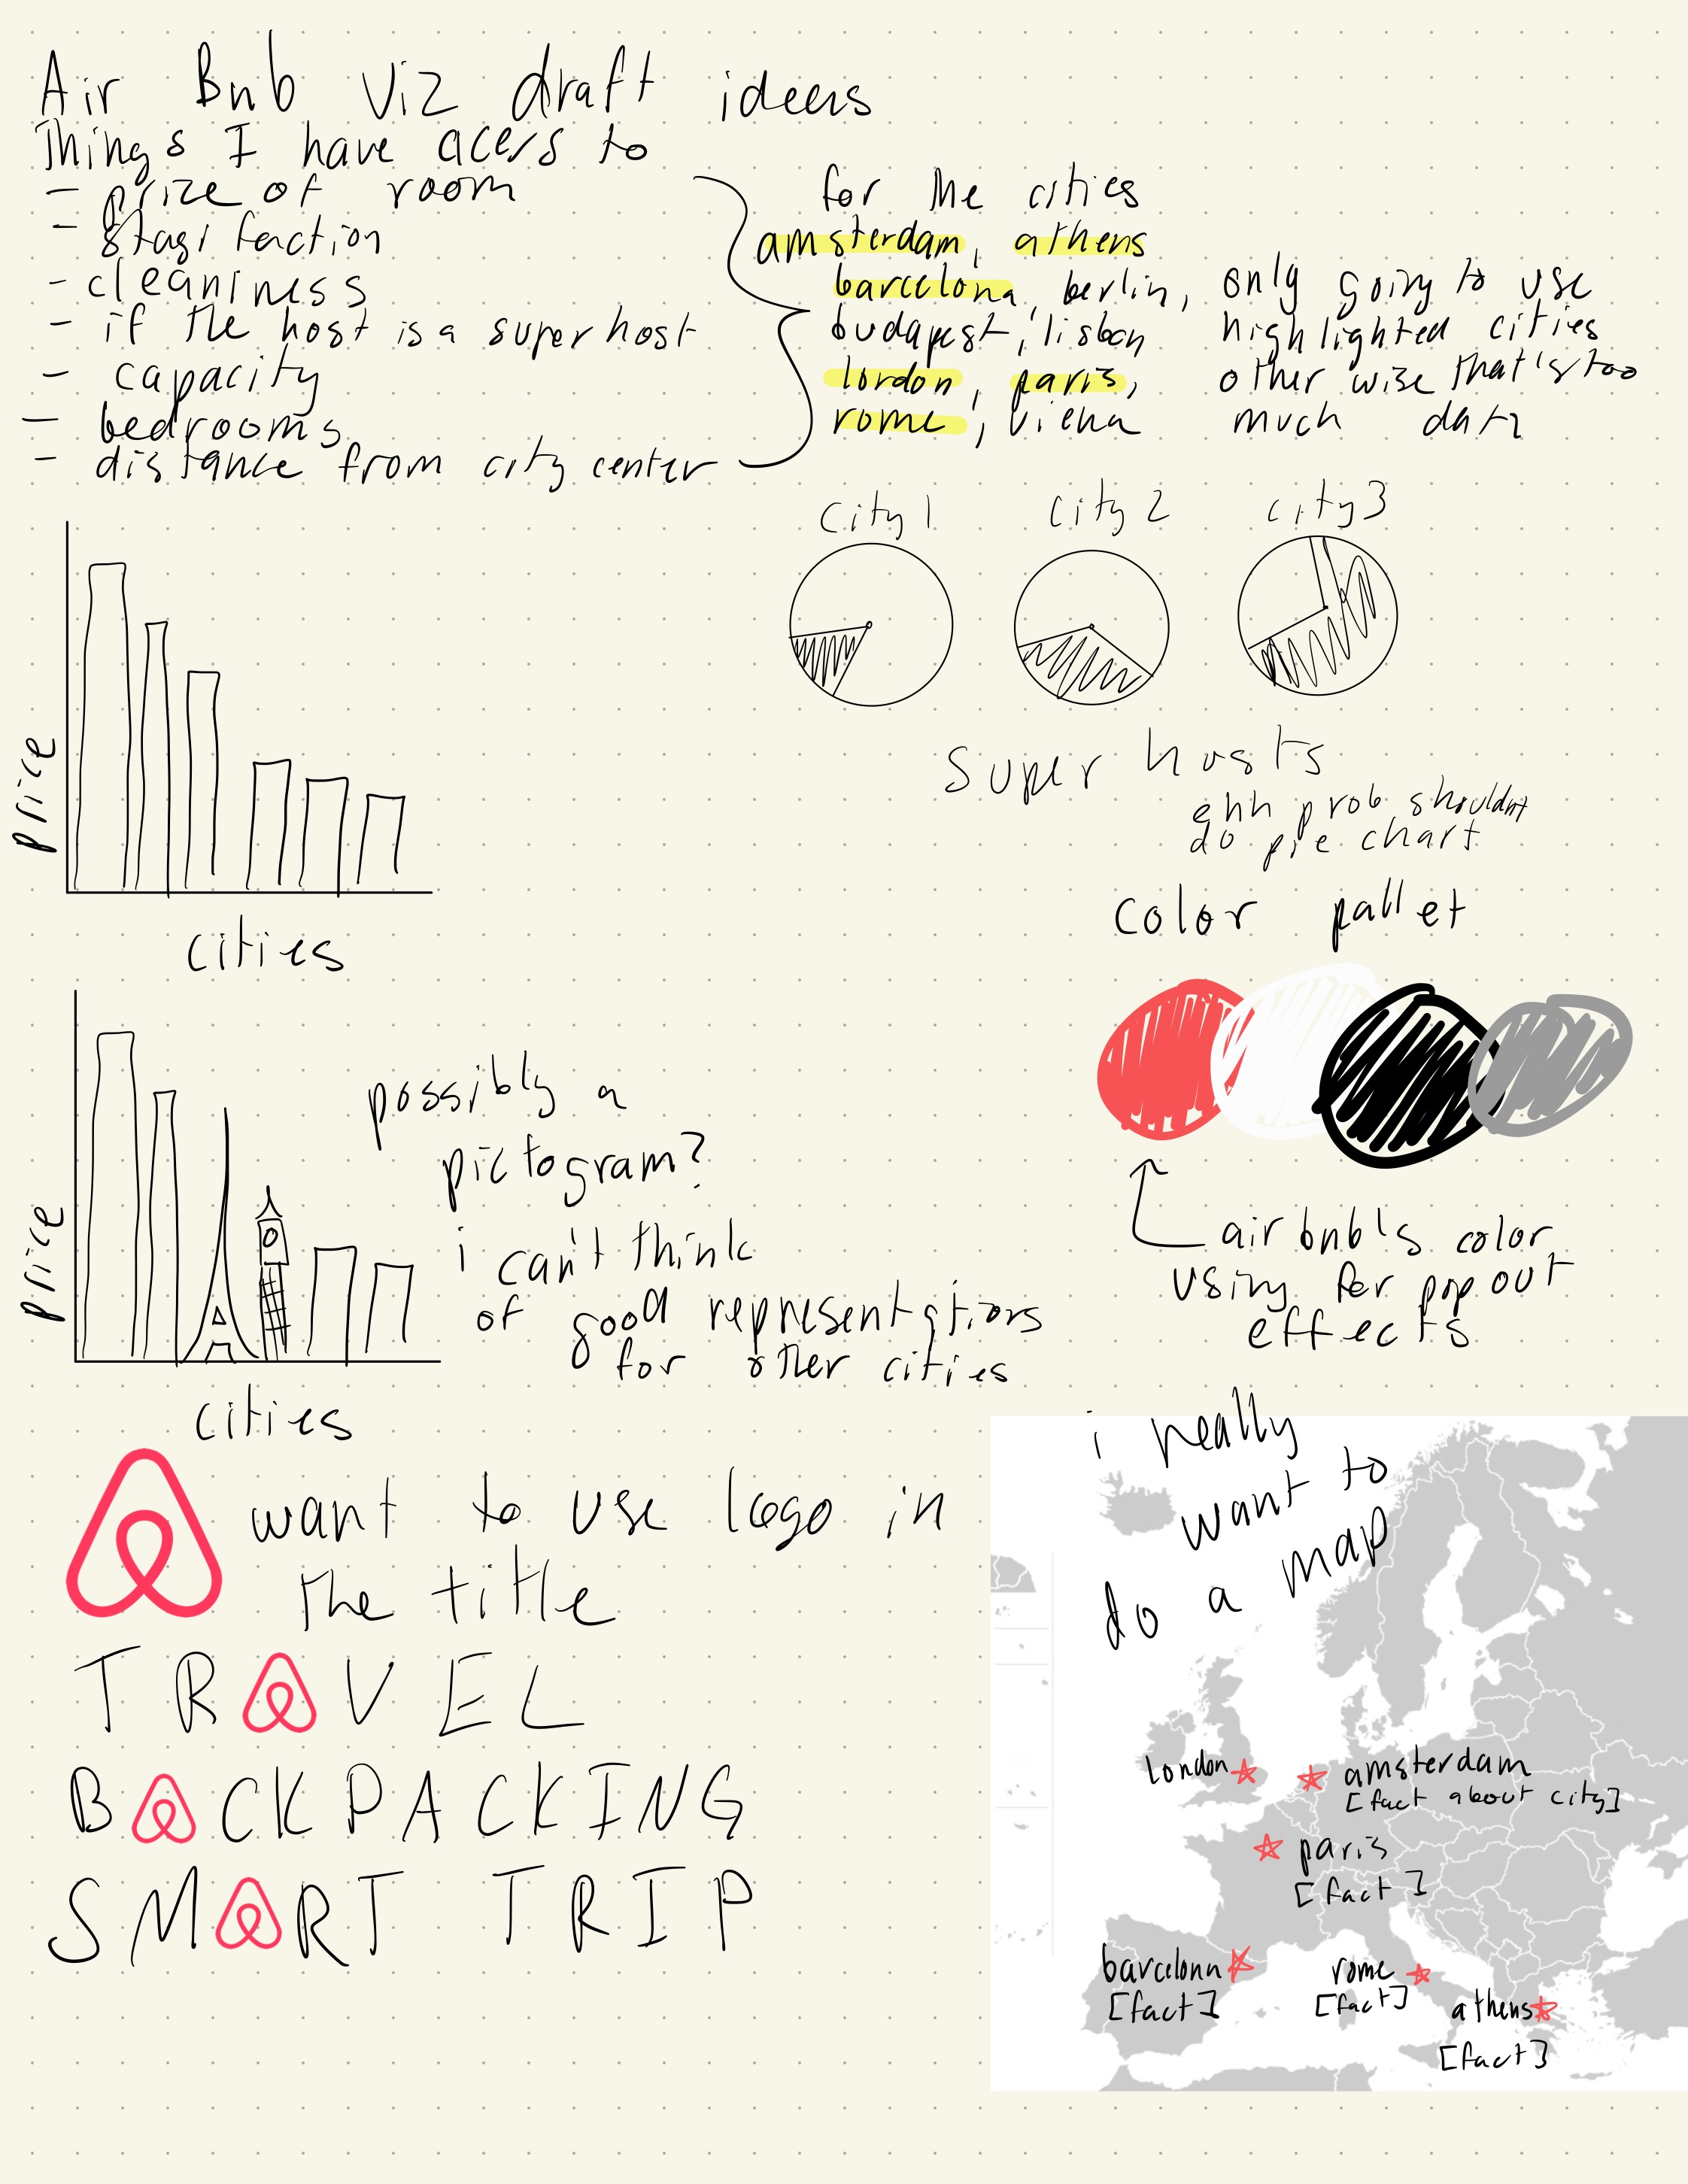 Air Bnb Viz draft ideas
Things I have acess to
- prize of room
- stagifaction
- cleaniness
- if the host is a super host
- capacity
- bedrooms
- distance from city center
for the cities
amsterdam, athens
barcelona, berlin,
budapest, lisbon
london, paris,
rome, viena
only going to use
highlighted cities
other wise that's too
much data
City 1
City 2
City 3
Super hosts
ehh prob shouldnt
do pie chart
price
cities
color pallet
airbnb's color
using for pop out
effects
price
cities
possibly a
pictogram?
i can't think
of good representations
for other cities
want to use logo in
the title
TRAVEL
BACKPACKING
SMART TRIP
i really
want to
do a map
london
amsterdam
[fact about city]
paris
[fact]
barcelona
[fact]
rome
[fact]
athens
[fact]